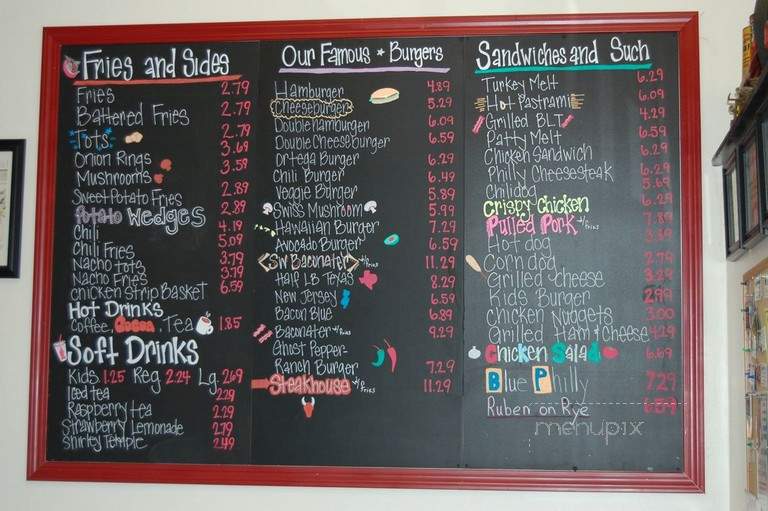 Fries and Sides
Fries 2.79
Battered Fries 2.79
Tots 2.79
Onion Rings 3.69
Mushrooms 3.59
Sweet Potato Fries 2.89
Potato Wedges 2.89
Chili 4.19
Chili Fries 5.09
Nacho tots 3.79
Nacho Fries 3.79
Chicken Strip Basket 6.59
Hot Drinks
Coffee, Cocoa, Tea 1.85
Soft Drinks
Kids 1.25 Reg 2.24 Lg. 2.69
Iced tea 2.29
Raspberry tea 2.29
Strawberry Lemonade 2.79
Shirley Temple 2.49
Our Famous * Burgers
Hamburger 4.89
Cheeseburger 5.29
Double Hamburger 6.09
Double Cheeseburger 6.59
Ortega Burger 6.29
Chili Burger 6.49
Veggie Burger 5.89
Swiss Mushroom 5.99
Hawaiian Burger 7.29
Avocado Burger 6.59
SW Baconater w/ Fries 11.29
Half LB Texas 8.29
New Jersey 6.59
Bacon Blue 6.89
Baconater w/ Fries 9.29
Ghost Pepper-
Ranch Burger 7.29
Steakhouse w/ Fries 11.29
Sandwiches and Such
Turkey Melt 6.29
Hot Pastrami 6.09
Grilled BLT 4.29
Patty Melt 6.59
Chicken Sandwich 6.29
Philly Cheesesteak 6.29
Chilidog 5.69
Crispy Chicken 6.29
Pulled Pork w/ Fries 7.89
Hot dog 3.39
Corn dog 2.79
Grilled Cheese 3.29
Kids Burger 2.99
Chicken Nuggets 3.00
Grilled Ham & Cheese 4.29
Chicken Salad 6.69
Blue Philly 7.29
Ruben on Rye 6.59
menupix